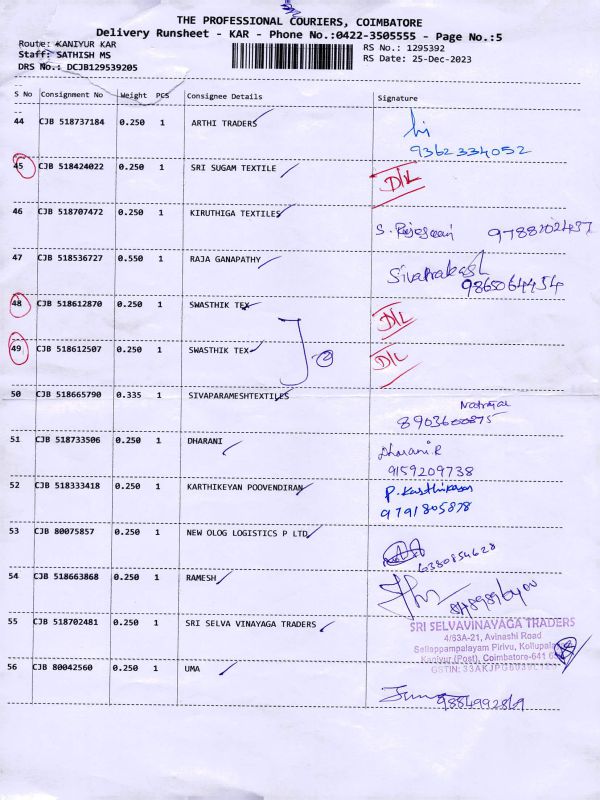 THE PROFESSIONAL COURIERS, COIMBATORE
Delivery Runsheet - KAR - Phone No.:0422-3505555 - Page No.:5
Route: KANIYUR KAR
RS No.: 1295392
Staff: SATHISH MS
RS Date: 25-Dec-2023
DRS No.: DCJB129539205
S No Consignment No Weight PCS Consignee Details Signature
44 CJB 518737184 0.250 1 ARTHI TRADERS
9362334052
45 CJB 518424022 0.250 1 SRI SUGAM TEXTILE D/L
46 CJB 518707472 0.250 1 KIRUTHIGA TEXTILES
S. 9788102437
47 CJB 518536727 0.550 1 RAJA GANAPATHY
Sivaprakash
9865064454
48 CJB 518612870 0.250 1 SWASTHIK TEX D/L
49 CJB 518612507 0.250 1 SWASTHIK TEX D/L
50 CJB 518665790 0.335 1 SIVAPARAMESHTEXTILES
8903600875
51 CJB 518733506 0.250 1 DHARANI
Dharani.R
9159209738
52 CJB 518333418 0.250 1 KARTHIKEYAN POOVENDIRAN
P. Karthikeyan
9791805878
53 CJB 80075857 0.250 1 NEW OLOG LOGISTICS P LTD
6380854628
54 CJB 518663868 0.250 1 RAMESH
55 CJB 518702481 0.250 1 SRI SELVA VINAYAGA TRADERS
SRI SELVAVINAYAGA TRADERS
4/63A-21, Avinashi Road
Sellappampalayam Pirivu, Kollupalayam
Kaniyur (Post), Coimbatore-641
GSTIN:
56 CJB 80042560 0.250 1 UMA